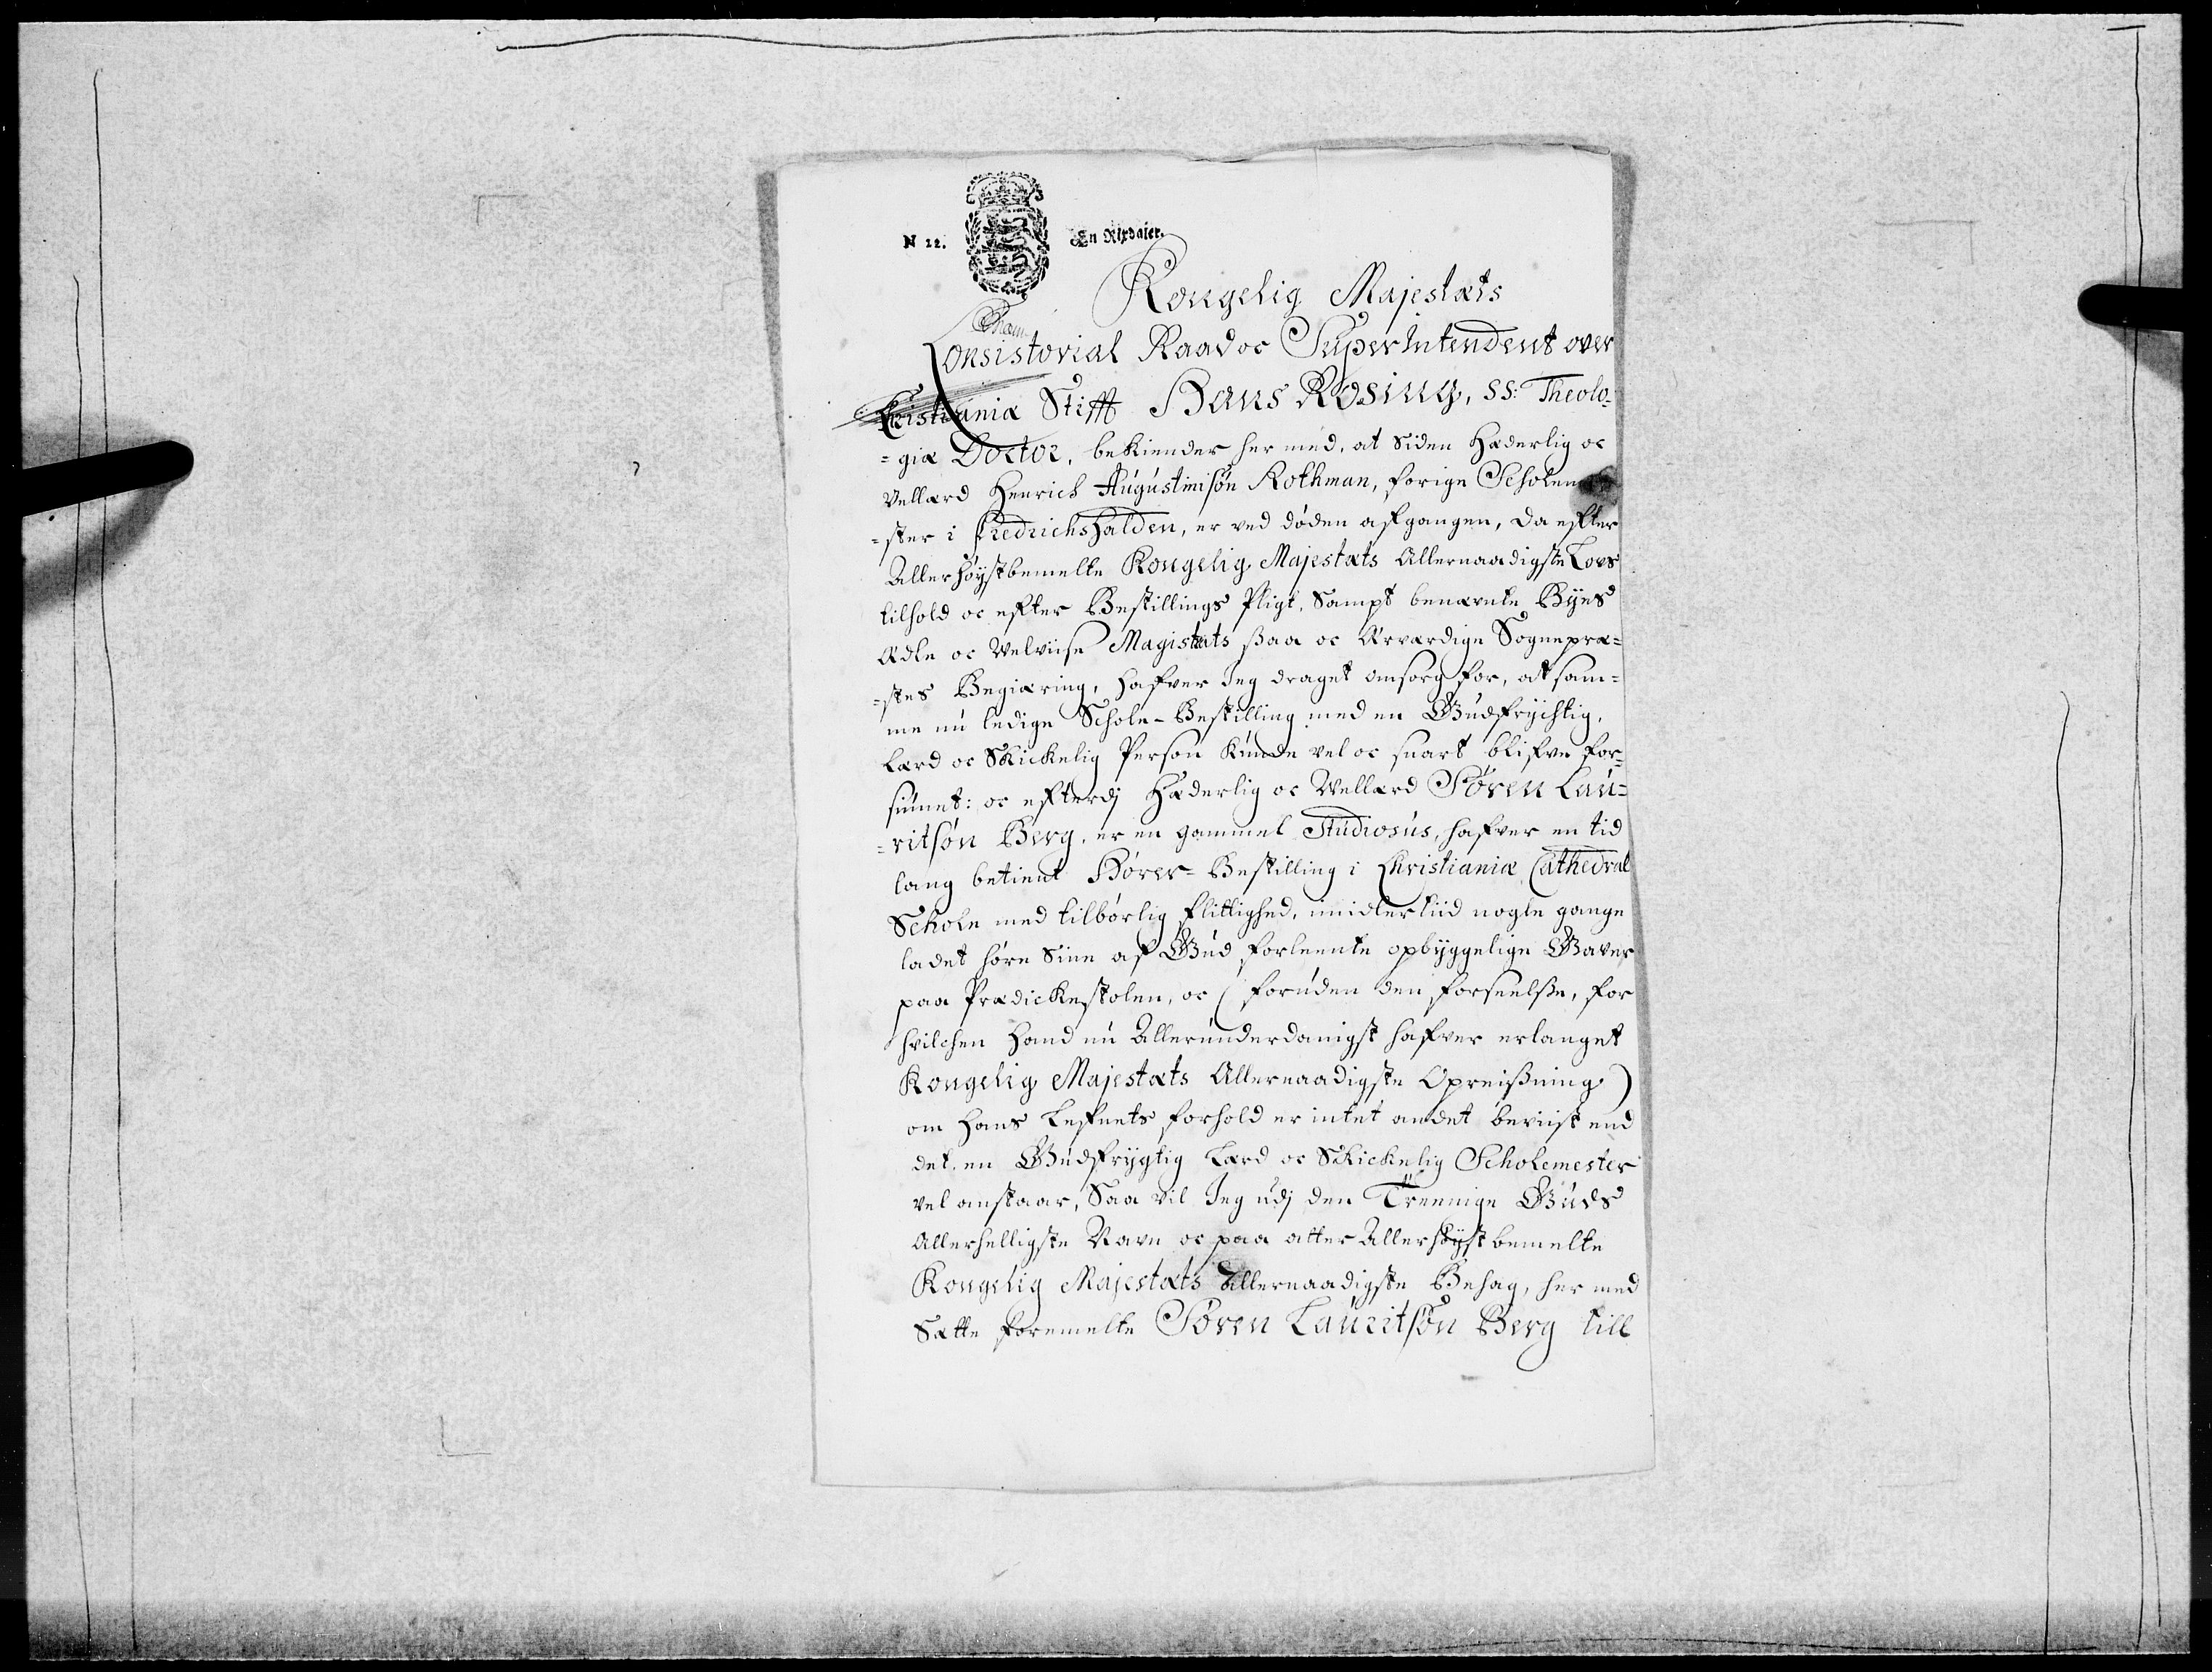 N 22. En Rixdaler.
Kongelig Majestæts
Consistorial Raad oc SuperIntendent over
Christiania Stifft Hans Rosing, SS: Theolo-
=giæ Doctor, bekiender her med, at siden Hæderlig oc
Vellærd Henrich Augustinisøn Rothman, forige Scholem
=ster i Fredrichshalden, er ved døden afgangen, da efter
Allerhøystbemelte Kongelig Majestæts Allernaadigste Lovs
tilhold oc efter Bestillings Pligt, Sampt benævnte Byes
Ædle oc Velviise Magistrats ßaa oc Ærværdige Sognepræ=
=stes Begiæring, hafver Jeg draget omsorg for, at sam=
me nu ledige Schole-Bestilling med en Gudfrychtig,
Lærd oc Skickelig Person kunde vel oc snart blifve for=
siunet: oc efterdj Hæderlig oc Vellærd Søren Lau=
=ritsøn Berg, er en gammel Studiosus, hafver en tid
lang betient Hører-Bestilling i Christianiæ Cathedral
Schole med tilbørlig flittighed, imidlertiid nogle gange
ladet høre Sine af Gud forleente opbyggelige Gaver
paa Prædickestolen, oc (foruden den forseelße, for
hvilchen Hand nu Allerunderdanigst hafver erlanget
Kongelig Majestæts Allernaadigste Opreißning)
om Hans Lefnets forhold er intet andet beviist end
det, en Gudfrygtig Lærd oc Skickelig Scholemester
vel anstaar, Saa vil Jeg udj den Treenige Guds
Allerhelligste Navn oc paa atter Allerhøystbemelte
Kongelig Majestæts Allernaadigste Behag, her med
Sætte foremelte Søren Lauritsøn Berg till